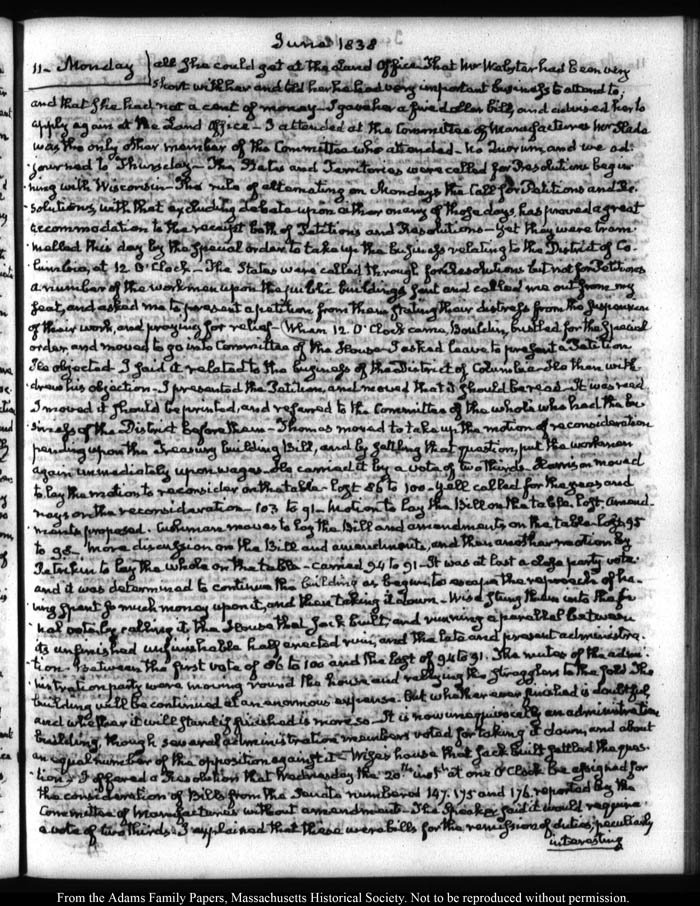 June 1838
11. Monday} all she could get at the Land Office. That Mr Webster had been very
short with her and told her he had very important business to attend to;
and that she had not a cent of money. I gave her a five dollar bill, and advised her to
apply again at the Land Office — I attended at the Committee of Manufactures Mr Slade
was the only other member of the Committee who attended. No Quorum, and we ad-
journed to Thursday — The States and Territories were called for Resolutions begin-
ning with Wisconsin — The rule of alternating on Mondays the Call for Petitions and Re-
solutions, with that excluding debate upon either on any of those days, has proved a great
accommodation to the receipt both of Petitions and Resolutions — Yet they were tram-
melled this day by the special order to take up the business relating to the District of Co-
lumbia, at 12 O'Clock — The States were called through for Resolutions but not for Petitions
a number of the workmen upon the public buildings sent and called me out from my
seat, and asked me to present a petition from them stating their distress from the suspension
of their work, and praying for relief — When 12 O'Clock came, Bouldin, bustled for the special
order, and moved to go into Committee of the House — I asked leave to present a Petition
He objected. I said it related to the business of the District of Columbia — He then with-
drew his objection — I presented the Petition, and moved that it should be read — It was read
I moved it should be printed, and referred to the Committee of the whole who had the bu-
siness of the District before them — Thomas moved to take up the motion of reconsideration
pending upon the Treasury building Bill, and by settling that question, put the workmen
again immediately upon wages. He carried it by a vote of two thirds. Harrison moved
to lay the motion to reconsider on the table — lost 86 to 100 — Yell called for the yeas and
nays on the reconsideration — 103 to 91 — Motion to lay the Bill on the table lost. Amend-
ments proposed. Cushman moves to lay the Bill and amendments on the table — lost 95
to 98. More discussion on the Bill and amendments, and then another motion by
Petrikin to lay the whole on the table — carried 94 to 91 — It was at last a close party vote
and it was determined to continue the building as begun, to escape the reproach of ha-
ving spent so much money upon it, and then taking it down — Wise stung them into the fi-
nal vote by calling it the House that Jack built, and running a parallel between
its unfinished unfinishable half erected ruin, and the late and present administra-
tion. Between the first vote of 86 to 100 and the last of 94 to 91. The mutes of the admi-
nistration party were moving round the house and rallying the stragglers to the fold The
building will be continued at an enormous expense. But whether ever finished is doubtful
and whether it will stand if finished is more so — It is now unequivocally an administration
building, though several administration members voted for taking it down, and about
an equal number of the opposition against it — Wise's house that Jack built settled the ques-
tion. I offered a Resolution that Wednesday the 20th inst at one O'Clock be assigned for
the consideration of Bills from the Senate numbered 147. 175 and 176. reported by the
Committee of Manufactures without amendment. The Speaker said it would require
a vote of two thirds. I explained that these were bills for the remission of duties, peculiarly
interesting
From the Adams Family Papers, Massachusetts Historical Society. Not to be reproduced without permission.